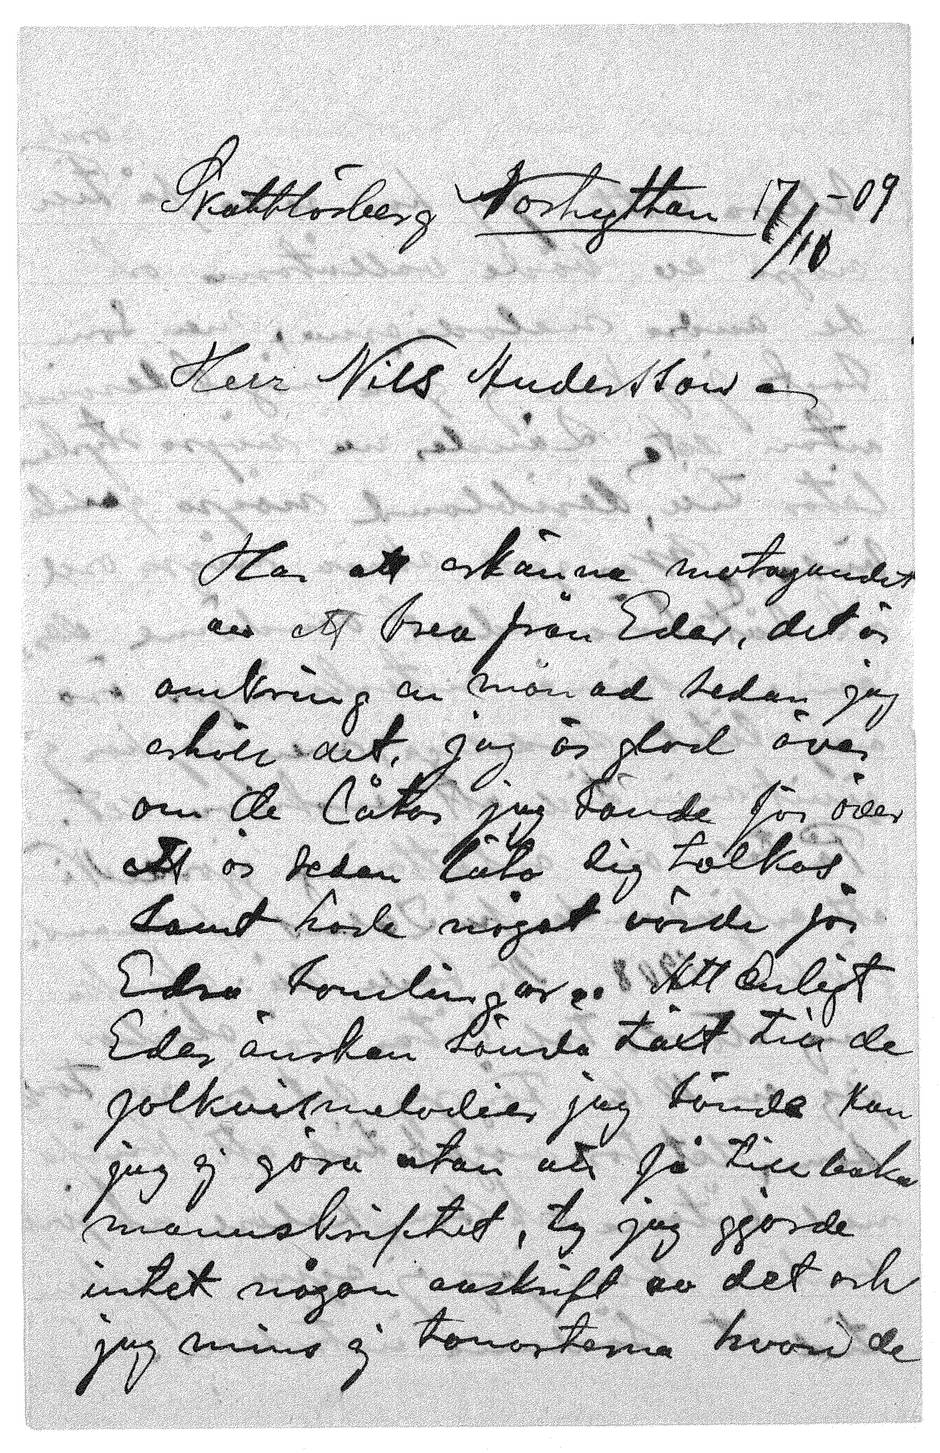 Skattlösberg Norhyttan 17/10 -09
Herr Nils Andersson
Har att erkänna motagandet
av ett brev från Eder, det är
omkring en månad sedan jag
erhöll det, jag är glad över
om de låtar jag sände för över
ett år sedan låta sig tolkas
samt hade något värde för
Edra samlingar. Att enligt
Eder önskan sända täxt till de
folkvismelodier jag sände kan
jag ej göra utan att få tillbaka
manuskriptet, ty jag gjorde
intet någon avskrift av det och
jag mins ej tonarterna hvari de